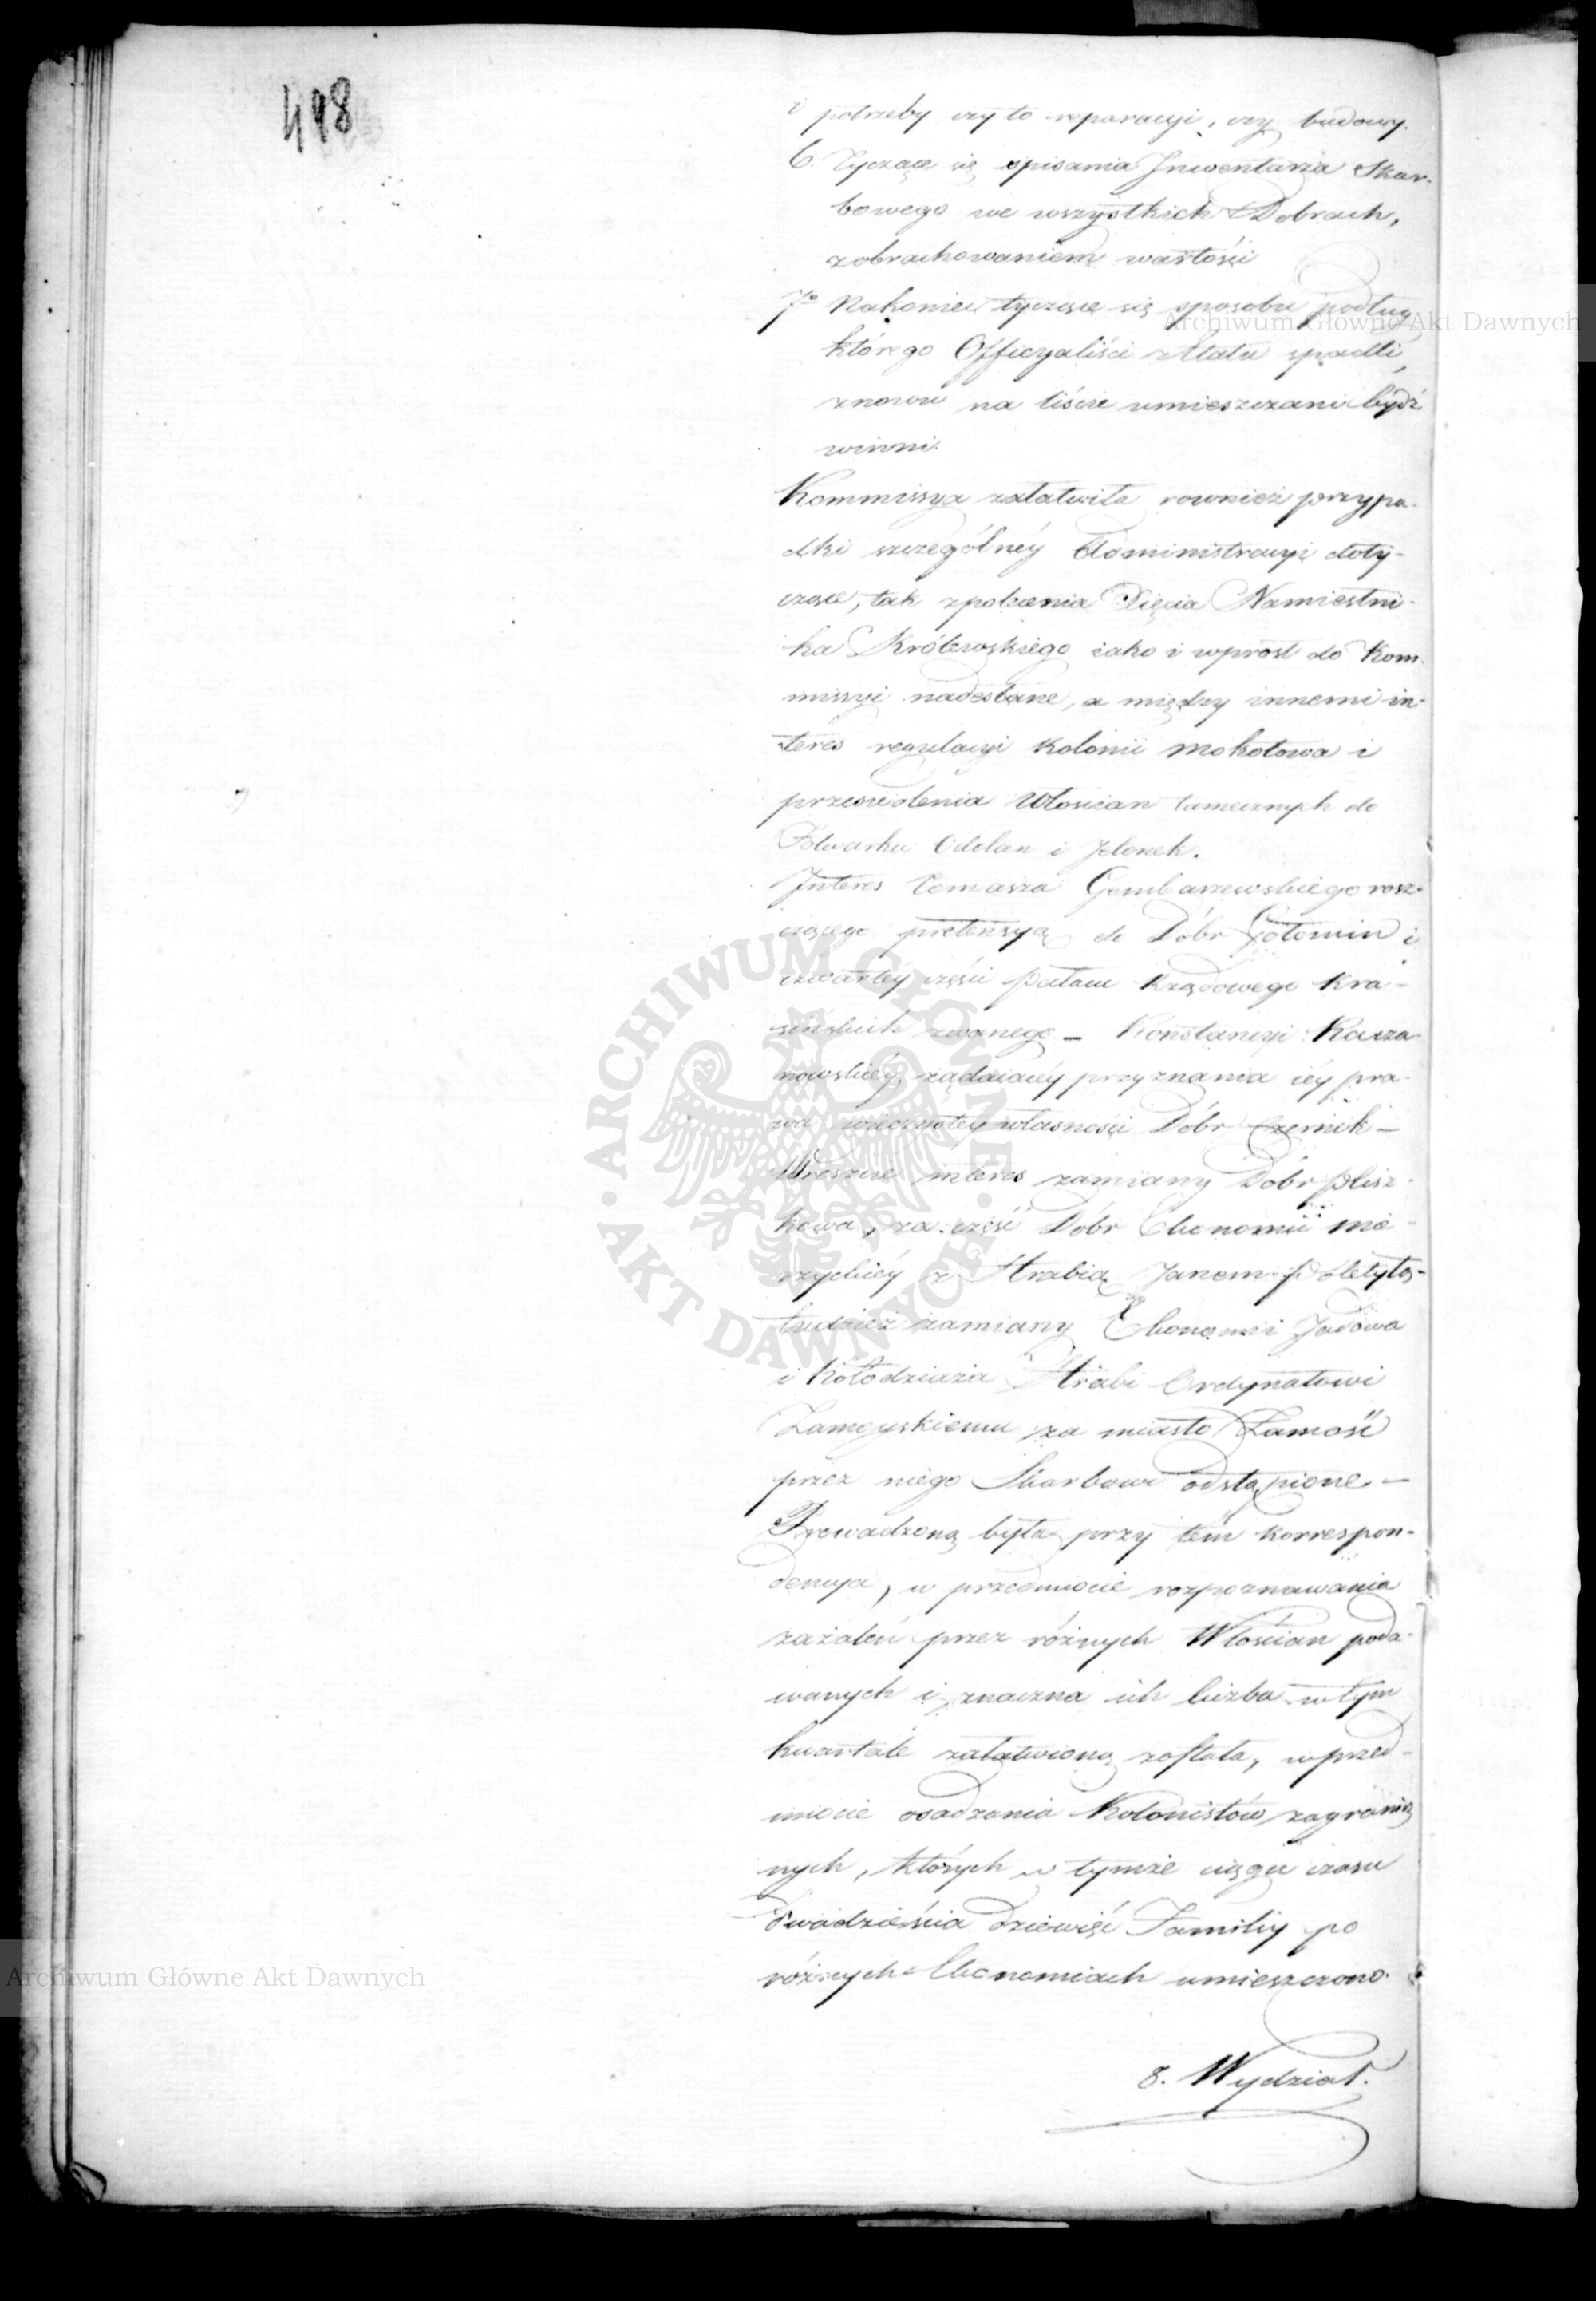 498
i potrzeby czy to reparacyi, czy budowy.
6. Tyczące się spisania Inwentarza Skar-
bowego we wszystkich Dobrach,
z obrachowaniem wartości
7o Nakoniec tyczące się sposobu podług
którego Officyaliści z Etatu spadli,
znowu na liście umieszczani bydź
winni.
Kommissya załatwiła rownież przypa-
dki szczególnéy Administracyi doty-
czące, tak z polecenia Xięcia Namiestni-
ka Królewskiego iako i wprost do Kom-
missyi nadesłane, a między innemi in-
teres regulacyi kolonii Mokotowa i
przesiedlenia Włościan tamecznych do
Folwarku Odolan i Jelonek.
Interes Tomasza Gembarzewskiego rosz-
czącego pretensyą do Dóbr Gołomin i
czwartéy części pałacu Rządowego Kra-
sińskich zwanego _ Konstancyi Kacza-
nowskiéy, żądaiącéy przyznania iéy pra-
wa wieczystéy własności Dóbr Czernik _
Wreszcie interes zamiany Dóbr Plisz-
kowa, za część Dóbr Ekonomii
z Hrabią Janem Poletyłą-
tudzież zamiany Ekonomii Jadowa
i Kołodziąża Hrabi Ordynatowi
Zamoyskiemu za miasto Zamość
przez niego Skarbowi odstąpione. _
Prowadzoną była przy tém korrespon-
dencya, w przedmiocie rozpoznawania
zażaleń przez różnych Włościan poda-
wanych i znaczna ich liczba w tym
kwartale załatwioną została, w przed-
miocie osadzania Kolonistów zagranicz
nych, których w tymże ciągu czasu
dwadzieścia dziewięć Familiy po
różnych Ekonomiach umieszczono.
8. Wydział.
Archiwum Główne Akt Dawnych
ARCHIWUM GŁÓWNE · AKT DAWNYCH ·
Archiwum Główne Akt Dawnych